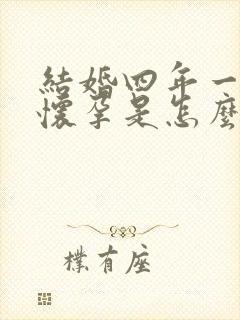 結婚四年一
懷孕是怎麼
樸有座